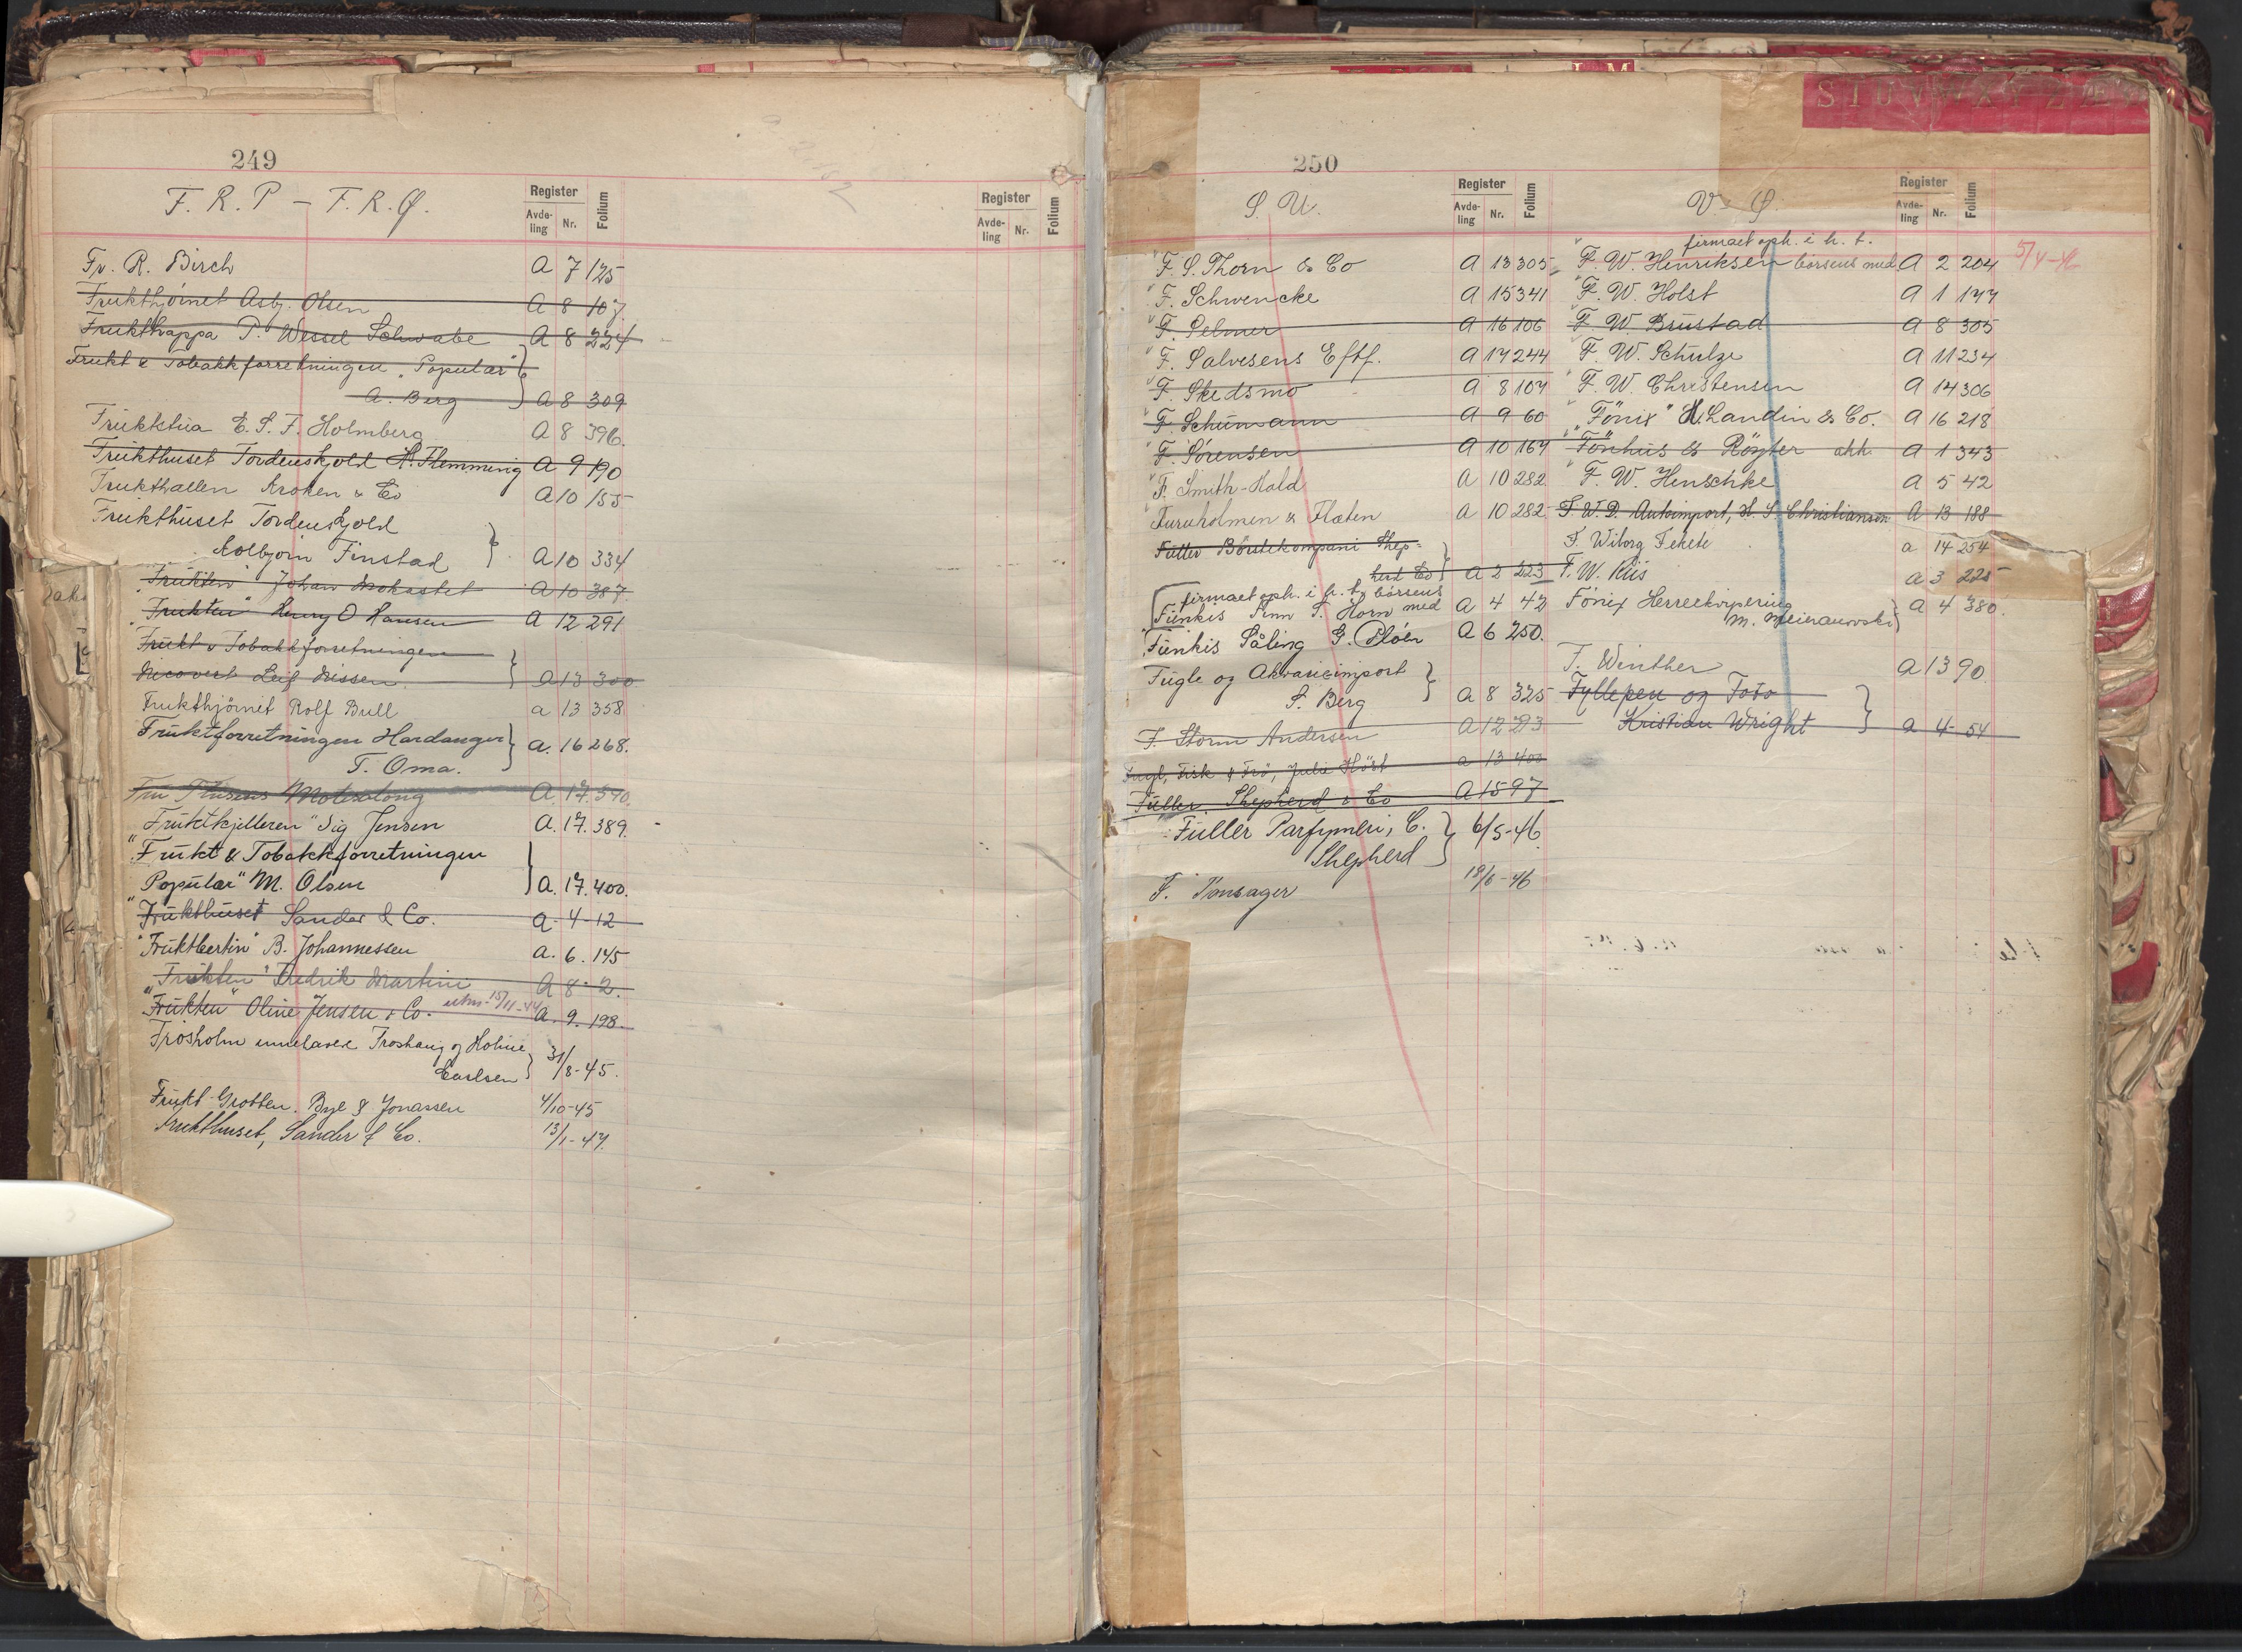 249
F. R. P – F. R. Ø.
Register
Avde-
ling
Nr.
Folium
Register
Avde-
ling
Nr.
Folium
Fr. R. Birch A 7 125
Frukthjørnet Asbj. Olsen A 8 107
Frukthappa P. Wessel Schwabe A 8 224
Frukt & Tobakkforretningen „Populær"
A. Berg A 8 309
Fruktstua E. S. F. Holmberg A 8 396.
Frukthuset Tordenskjold H. Flemming A 9 190
Frukthallen Kroken & Co A 10 155
Frukthuset Tordenskjold
Kolbjørn Finstad A 10 334
„Frukten" Johan Mokastet A 10 387.
„Frukten" Henry O Hansen A 12 291
Frukt & Tobakkforretningen
Nicovert Leif Nissen. A 13 300
Frukthjørnet Rolf Bull a 13 358
Fruktforretningen Hardanger
T. Oma. a. 16 268.
Fru Motesalong A. 17.
„Fruktkjelleren" Sig Jensen A. 17. 389.
„Frukt & Tobakkforretningen
Populær" M. Olsen a. 17. 400.
„Frukthuset Sander & Co. a. 4-12
"Fruktbertin" B. Johannessen a. 6. 145
„Frukten" Fredrik Martini A 8 2.
„Frukten" Oline Jensen & Co. A. 9. 198.
Frosholm innehavere Froshaug og Holme
Carlsen 31/8-45.
Frukt Grotten. Bye & Jonassen 4/10-45
Frukthuset, Sander & Co. 13/1-47.
250
STUVWXYZÆ
S. U.
Register
Avde-
ling
Nr.
Folium
F. S. Thorn & Co A 13 305
F. Schwencke A 15 341
F. Selmer A 16 106
F. Salvesens Eftf. A 17 244
F. Skedsmo A 8 107
F. Schümann A 9 60
F. Sörensen A 10 167
F. Smith-Hald A 10 282
Furuholmen & Flaten A 10 282
Fuller Börstekompani Shep=
herd Co A 2 223
firmaet oph. i h. t. börsens
Funkis Finn F. Horn med A 4 42
Funkis Såling G. Moen A 6 250.
Fugle og Akvarieimport
S. Berg A 8 325
F. Storm Andersen A 12 293
Fugl, Fisk & Frö, Julie Höst a 13 400
Fuller Shepherd & Co A 15 97
Fuller Parfymeri, C.
Shepherd 6/5-46
F. Tonsager 18/6-46
V – Ø
Register
Avde-
ling
Nr.
Folium
firmaet oph. i h. t.
F. W. Henriksen börsens med A 2 204 5/4-46
F. W. Holst A 1 177
F. W. Brustad A 8 305
F. W. Schulze A 11 234
F. W. Christensen A 14 306
"Fönix" H. Landin & Co. A 16 218
Fönhus & Röyter A 1 343
F. W. Henschke A 5 42
F. W. D. Autoimport, H. S. Christiansen A 13 188
F. Wiborg Fekete a 14 254
F. W. Kiis a 3 225
Fönix Herreekvipering
M. Meieranowski A 4 380.
F. Winther A 13 90
Fyllepen og Foto
Kristian Wright a 4 54